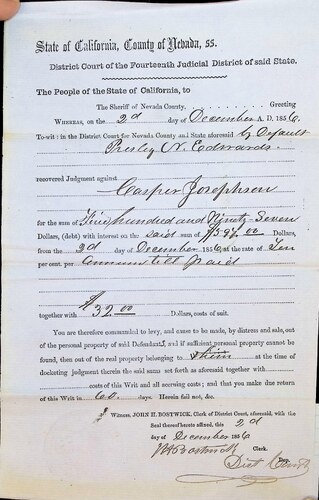 State of California, County of Nevada, ss.
District Court of the Fourteenth Judicial District of said State.
The People of the State of California, to
The Sheriff of Nevada County, Greeting
WHEREAS, on the 2d day of December A. D. 1856.
To-wit: in the District Court for Nevada County and State aforesaid by Default
Presley N. Edwards
recovered Judgment against
Casper Josephson
for the sum of Five hundred and Ninety Seven
Dollars, (debt) with interest on the said sum of $597.00 Dollars,
from the 2d day of December 1856 at the rate of Ten
per cent. per annum till paid
together with $32.00 Dollars, costs of suit.
You are therefore commanded to levy, and cause to be made, by distress and sale, out
of the personal property of said Defendant, and if sufficient personal property cannot be
found, then out of the real property belonging to him at the time of
docketing judgment therein the said sums set forth as aforesaid together with
costs of this Writ and all accruing costs; and that you make due return
of this Writ in 60 days. Herein fail not, &c.
WITNESS, JOHN H. BOSTWICK, Clerk of District Court, aforesaid, with the
Seal thereof hereto affixed, this 2d
day of December 1856
JH Bostwick Clerk.
Dist Court